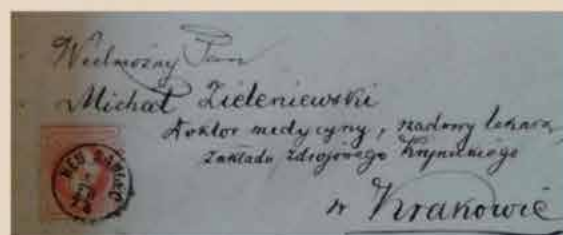 Wielmożny Pan
Michał Zieleniewski
doktor medycyny, rządowy lekarz
zakładu zdrojowego Krynickiego
w Krakowie
NEU SANDEC